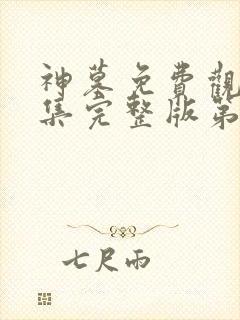 神墓免費觀
集完整版第
七尺雨